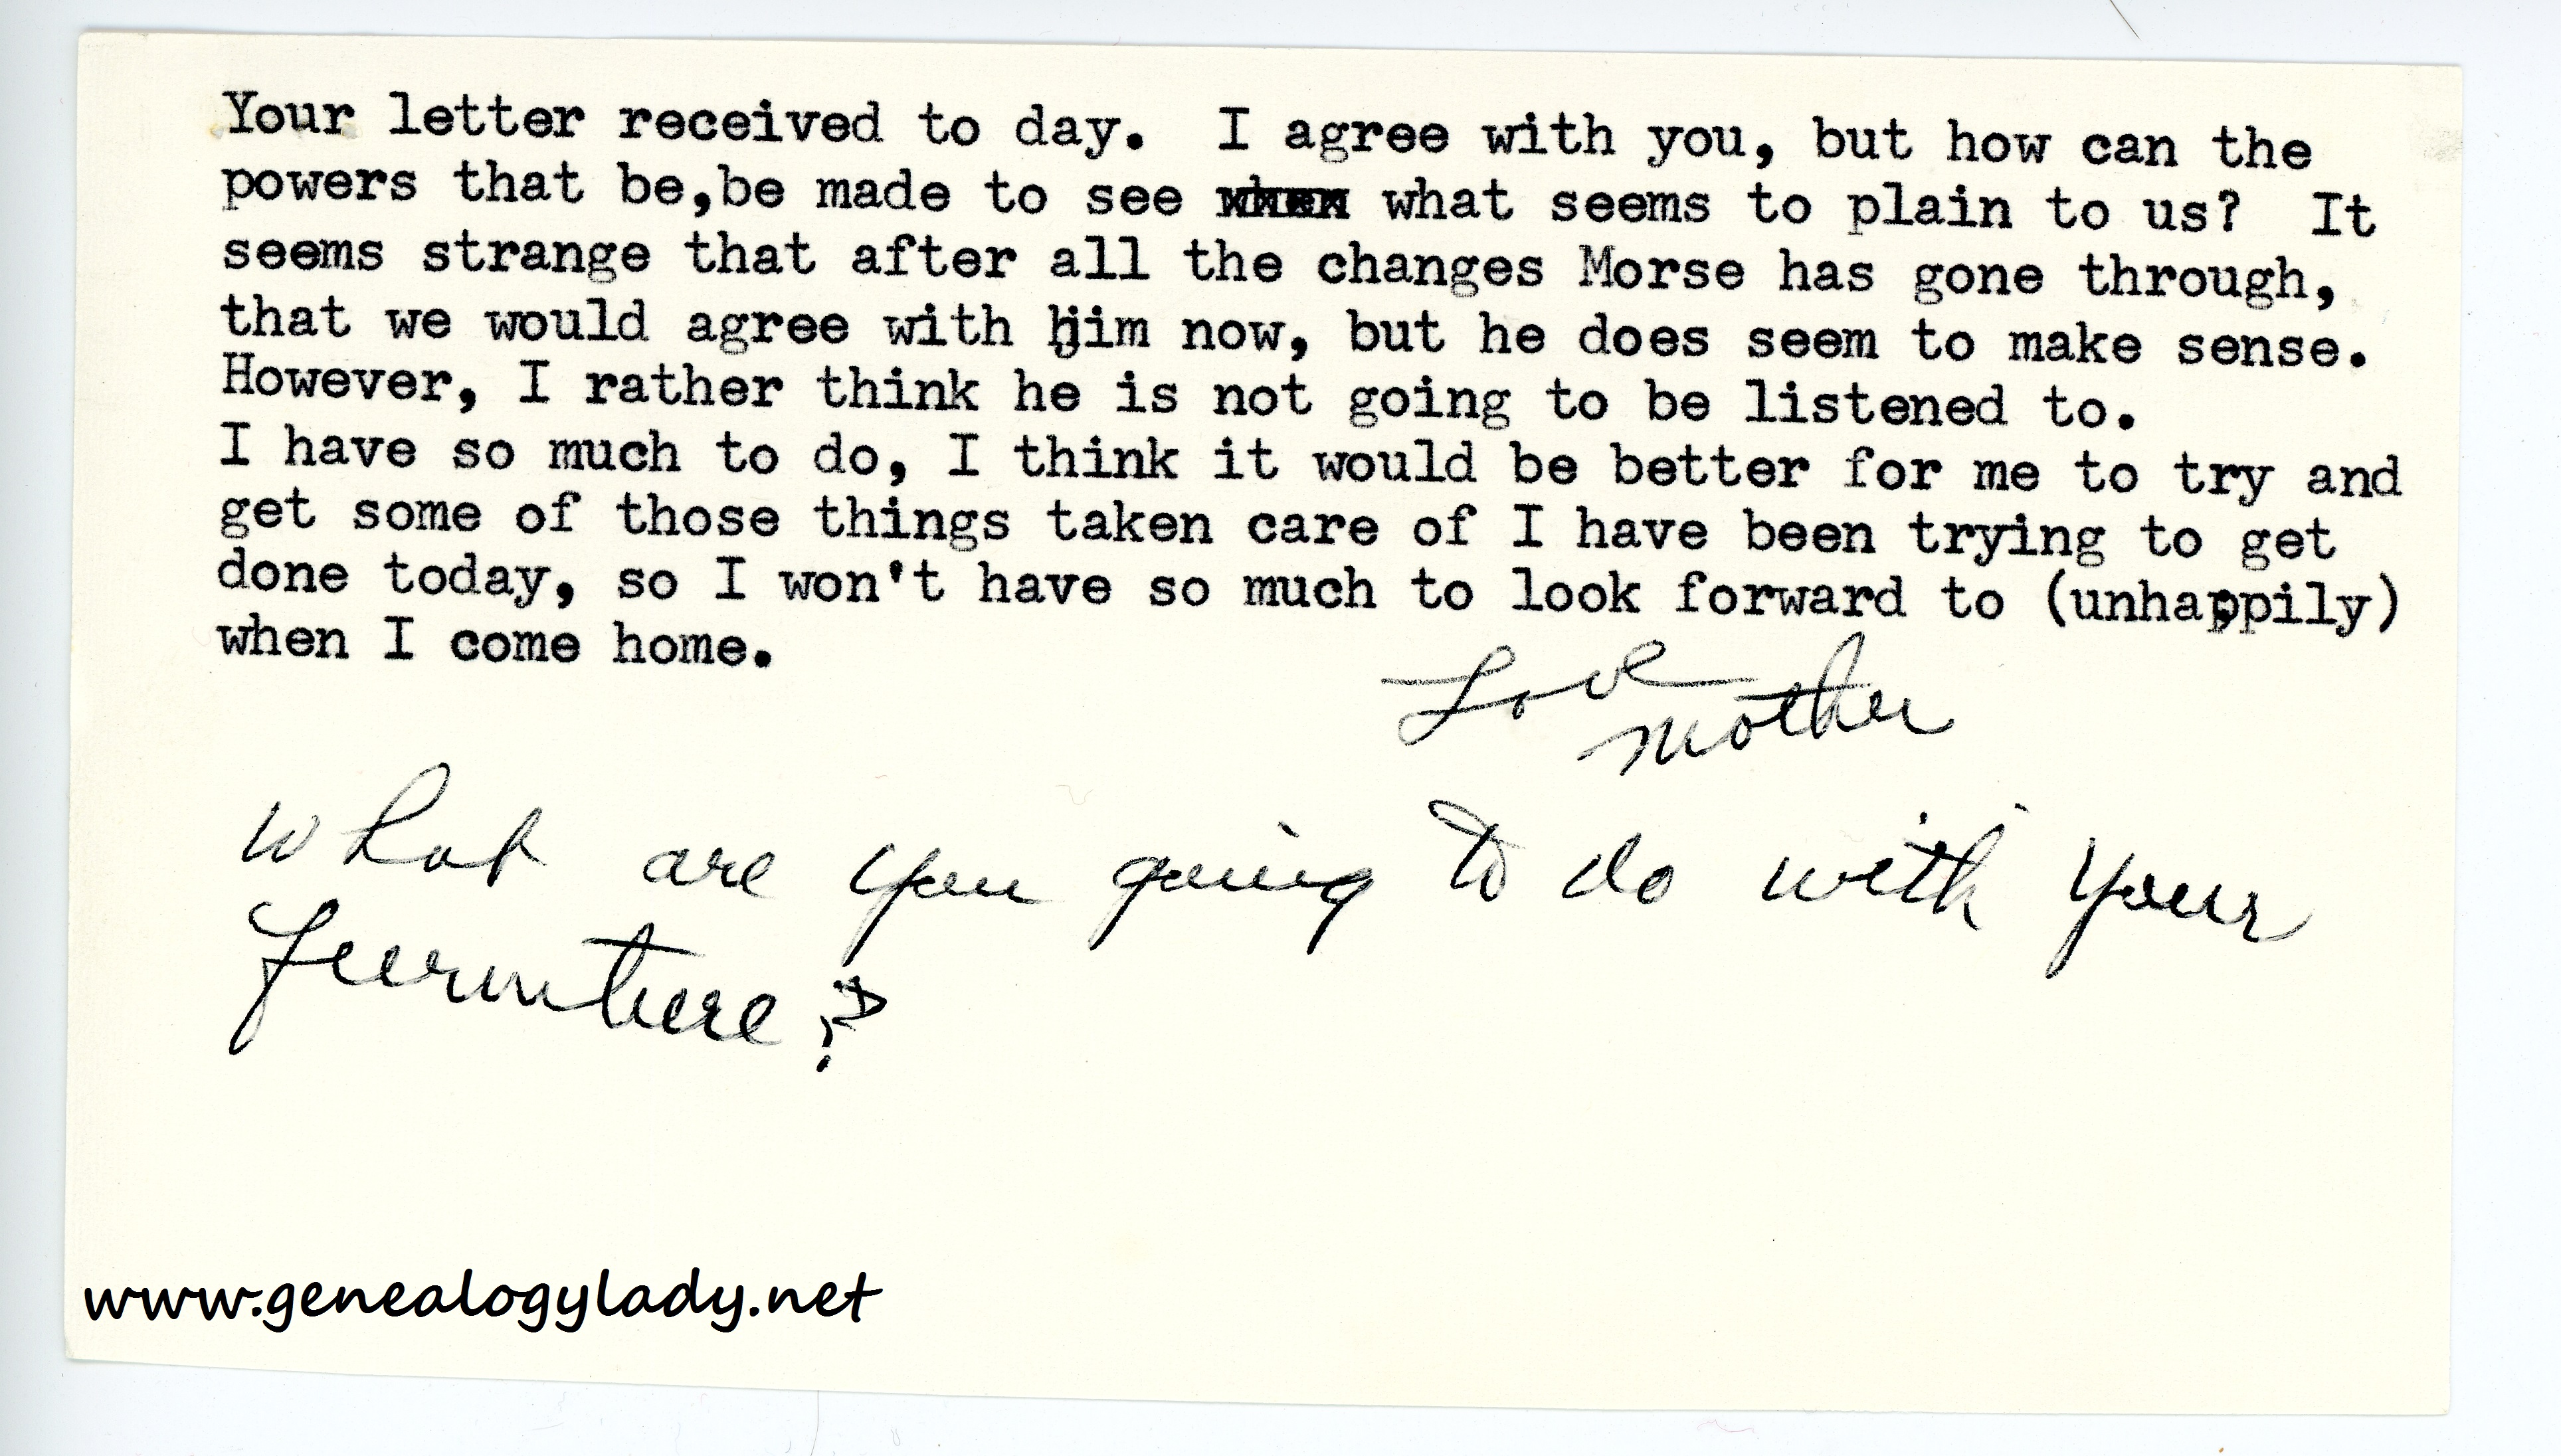 Your letter received to day.  I agree with you, but how can the
powers that be,be made to see when what seems to plain to us?  It
seems strange that after all the changes Morse has gone through,
that we would agree with him now, but he does seem to make sense.
However, I rather think he is not going to be listened to.
I have so much to do, I think it would be better for me to try and
get some of those things taken care of I have been trying to get
done today, so I won't have so much to look forward to (unhappily)
when I come home.
Love
Mother
What are you going to do with your
furniture?
www.genealogylady.net